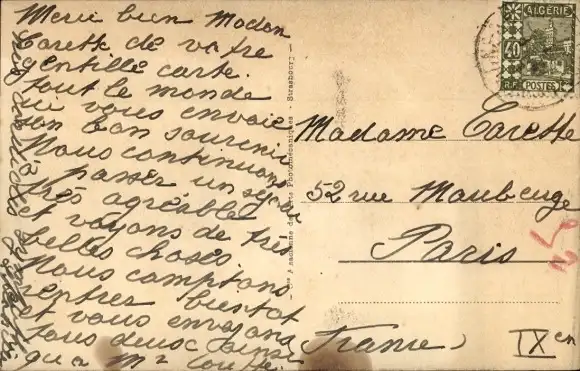 Merci bien Madam
Carette de votre
gentille carte.
tout le monde
ici vous envoie
son bon souvenir
Nous continuons
passer un séjour
très agréable
et voyons de très
belles choses
Nous comptons
rentrer bientot
et vous envoyons
tous deux ainsi
qu'a Mr
ALGÉRIE
40
R.F. POSTES
Madame Carette
52 rue Maubeuge
Paris
IXem
France
Photomécaniques - Strasbourg